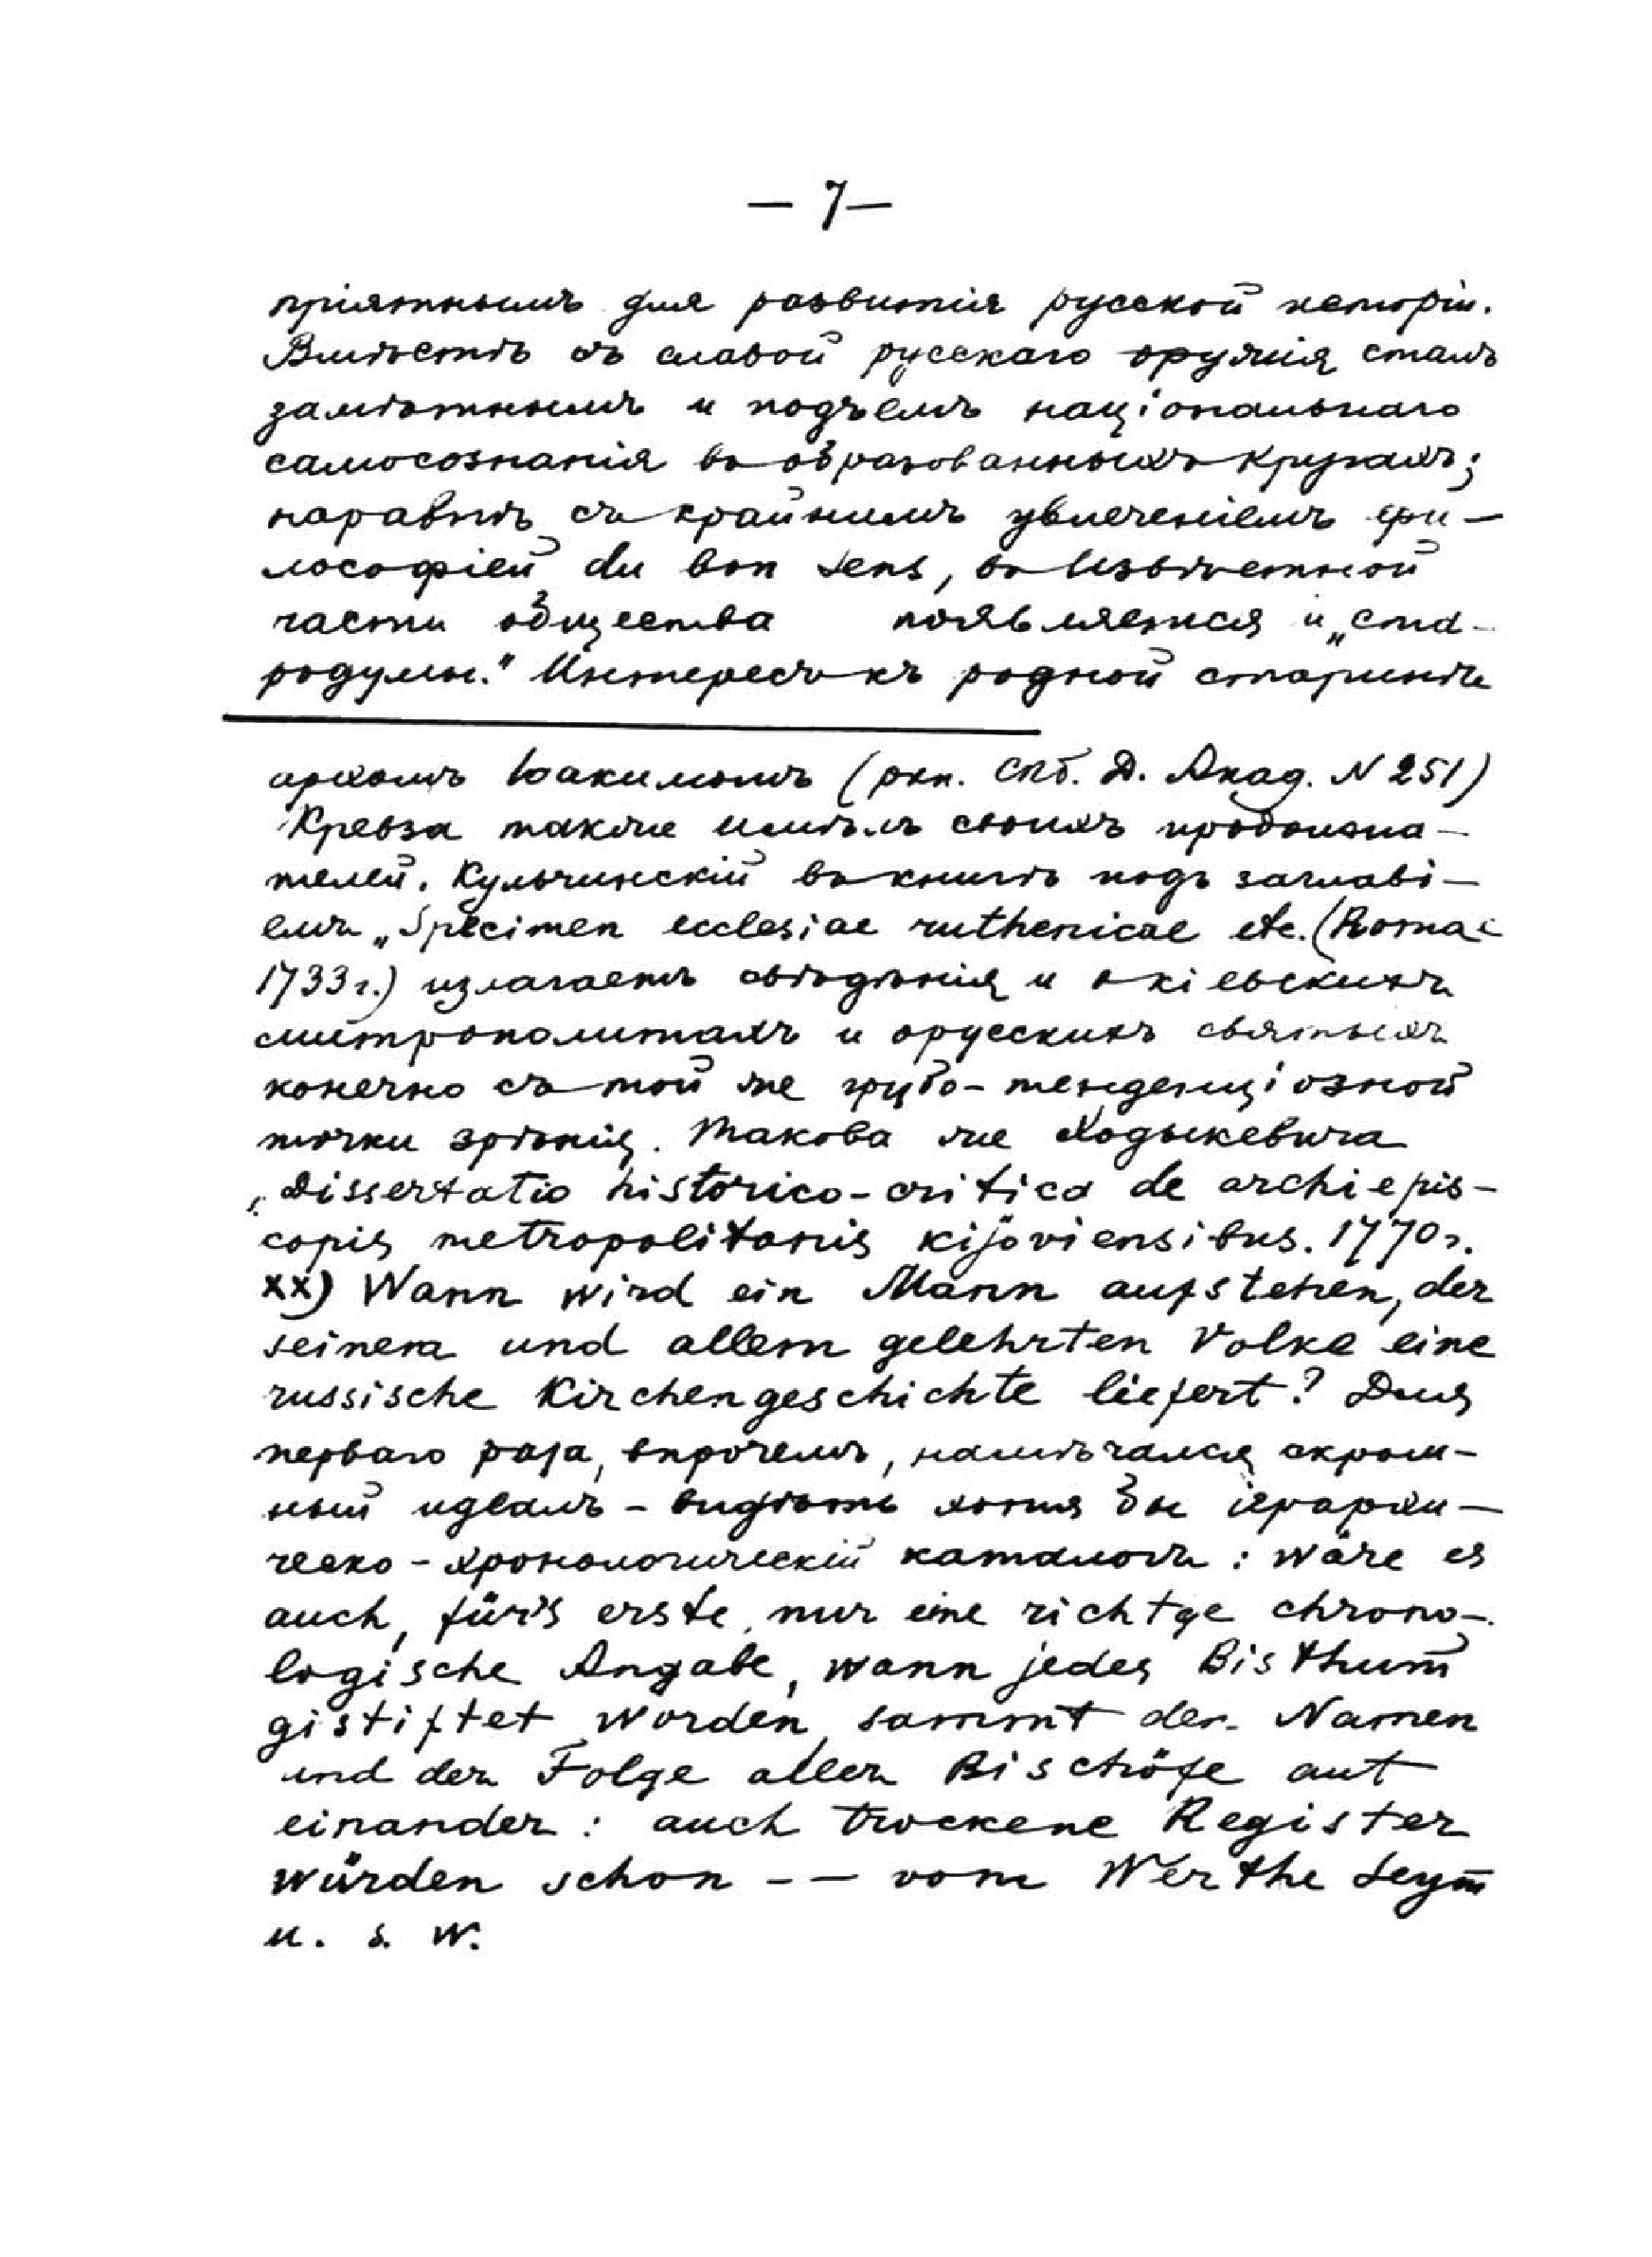 — 7 —
пріятнымъ для развитія русской исторіи.
Вмѣстѣ съ славой русскаго оружія сталъ
замѣтнымъ и подъемъ національнаго
самосознанія въ образованныхъ кругахъ;
наравнѣ съ крайнимъ увлеченіемъ фи-
лософіей du bon sens, въ извѣстной
части общества появляются и „ста-
родумы." Интересъ къ родной старинѣ
архомъ Іоакимомъ (ркп. Спб. Д. Акад. N 251)
Кревза также имѣлъ своихъ продолжа-
телей. Кульчинскій въ книгѣ подъ заглаві-
емъ „Specimen ecclesiae ruthenicae etc. (Romae
1733 г.) излагаетъ свѣдѣнія и о кіевскихъ
митрополитахъ и о русскихъ святыхъ
конечно съ той же грубо-тенденціозной
точки зрѣнія. Такова же Ходыкевича
„Dissertatio historico-critica de archiepis-
copis metropolitanis kijoviensibus. 1770 г.
xx) Wann wird ein Mann aufstehen, der
seinem und allem gelehrten Volke eine
russische Kirchengeschichte liefert? Для
перваго раза, впрочемъ, намѣчался скром-
ный идеалъ - видѣть хотя бы іерархи-
ческо-хронологическій каталогъ: wäre es
auch, für's erste, nur eine richtge chrono-
logische Angabe, wann jedes Bisthum
gistiftet worden, sammt den Namen
und der Folge aller Bischöfe auf
einander: auch trockene Register
würden schon - — vom Werthe seyn
u. s. w.